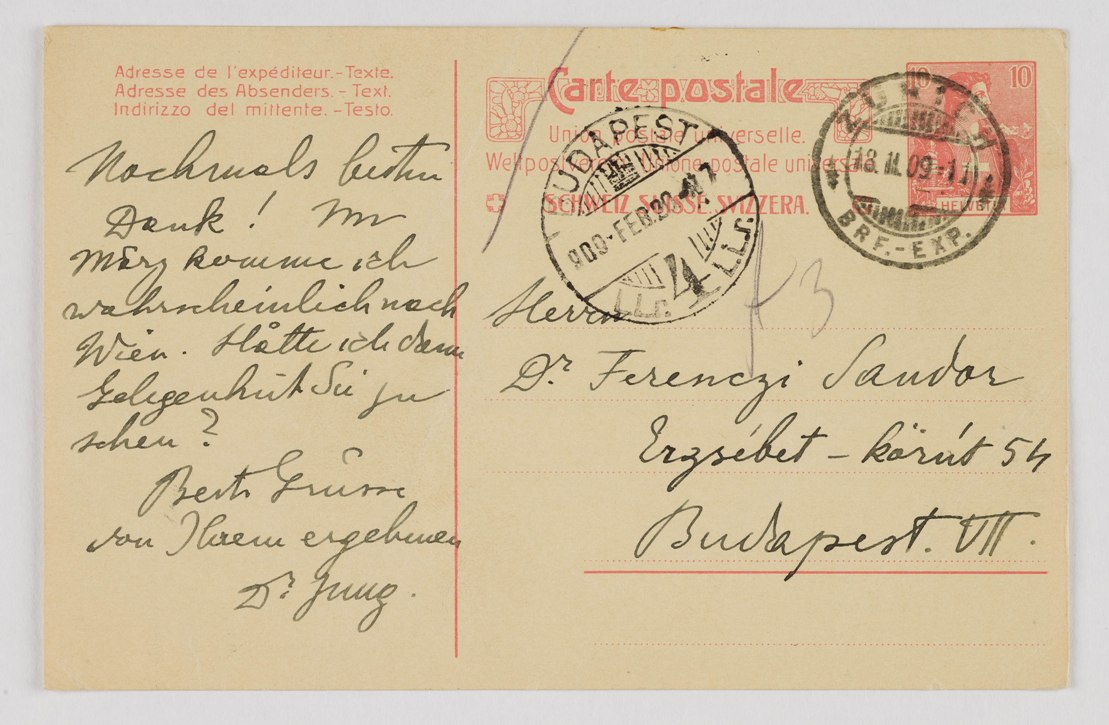 Adresse de l'expéditeur.-Texte.
Adresse des Absenders. - Text.
Indirizzo del mittente. -Testo.
Nochmals besten
Dank! Im
März komme ich
wahrscheinlich nach
Wien. Hätte ich dann
Gelegenheit Sie zu
sehen?
Beste Grüsse
von Ihrem ergebenen
Dr. Jung.
Carte postale
Union postale universelle.
Weltpostverein. Unione postale universale
SCHWEIZ. SUISSE. SVIZZERA.
10 10
HELVETIA
ZÜRICH
18.II.09.-11
BRF.-EXP.
BUDAPEST
909-FEB.20
4
Herrn
Dr. Ferenczi Sandor
Erzsébet - körút 54
Budapest. VII.